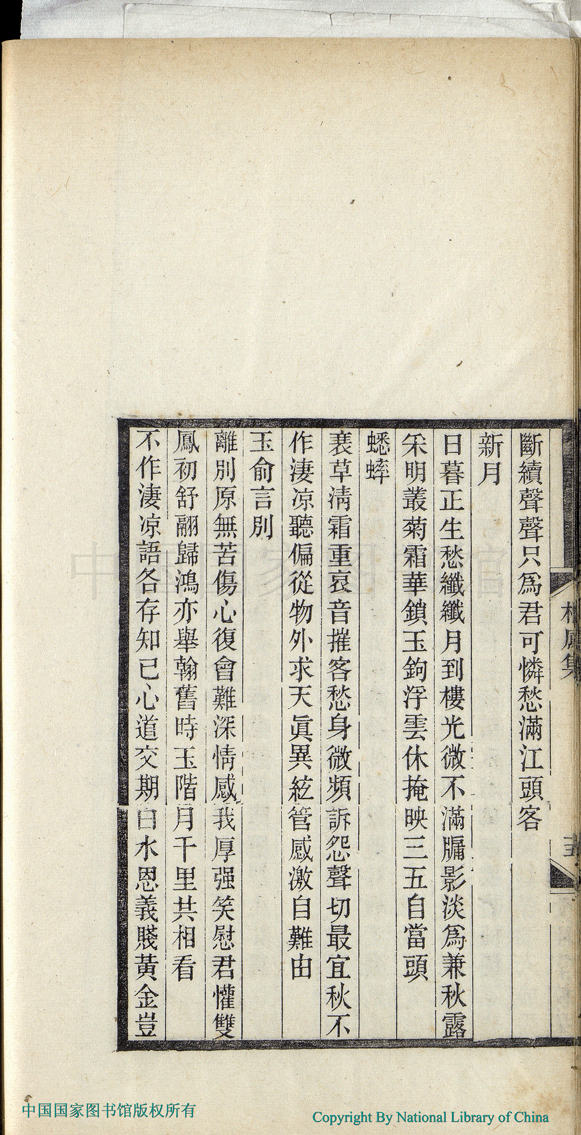 斷續聲聲只爲君可憐愁滿江頭客
新月
日暮正生愁纖纖月到樓光微不滿牖影淡爲兼秋露
釆明叢菊霜華鎖玉鉤浮雲休掩映三五自當頭
蟋蟀
衰草淸霜重哀音摧客愁身微頻訴怨聲切最宜秋不
作淒凉聽偏從物外求天眞異絃管感激自難由
玉俞言別
離別原無苦傷心復會難深情感我厚强笑慰君懽雙
鳳初舒翮歸鴻亦舉翰舊時玉階月千里共相看
不作淒凉語各存知已心道交期白水恩義賤黃金豈
中国国家图书馆
中国国家图书馆版权所有
Copyright By National Library of China